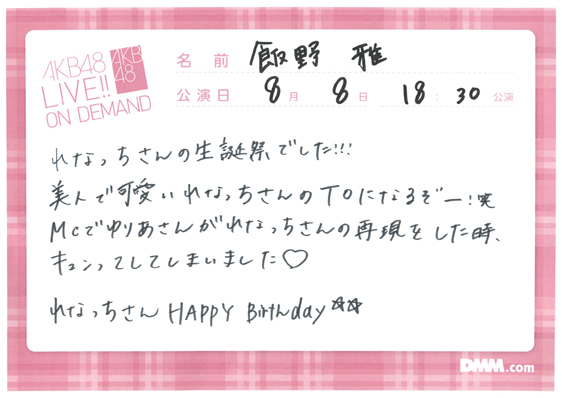 AKB48
LIVE!!
ON DEMAND
AKB
48
名前 飯野 雅
公演日 8月 8日 18:30 公演
れなっちさんの生誕祭でした!!!
美人で可愛いれなっちさんのTOになるぞー!笑
MCでゆりあさんがれなっちさんの再現をした時、
キュンってしてしまいました♡
れなっちさん HAPPY Birthday☆☆
DMM.com